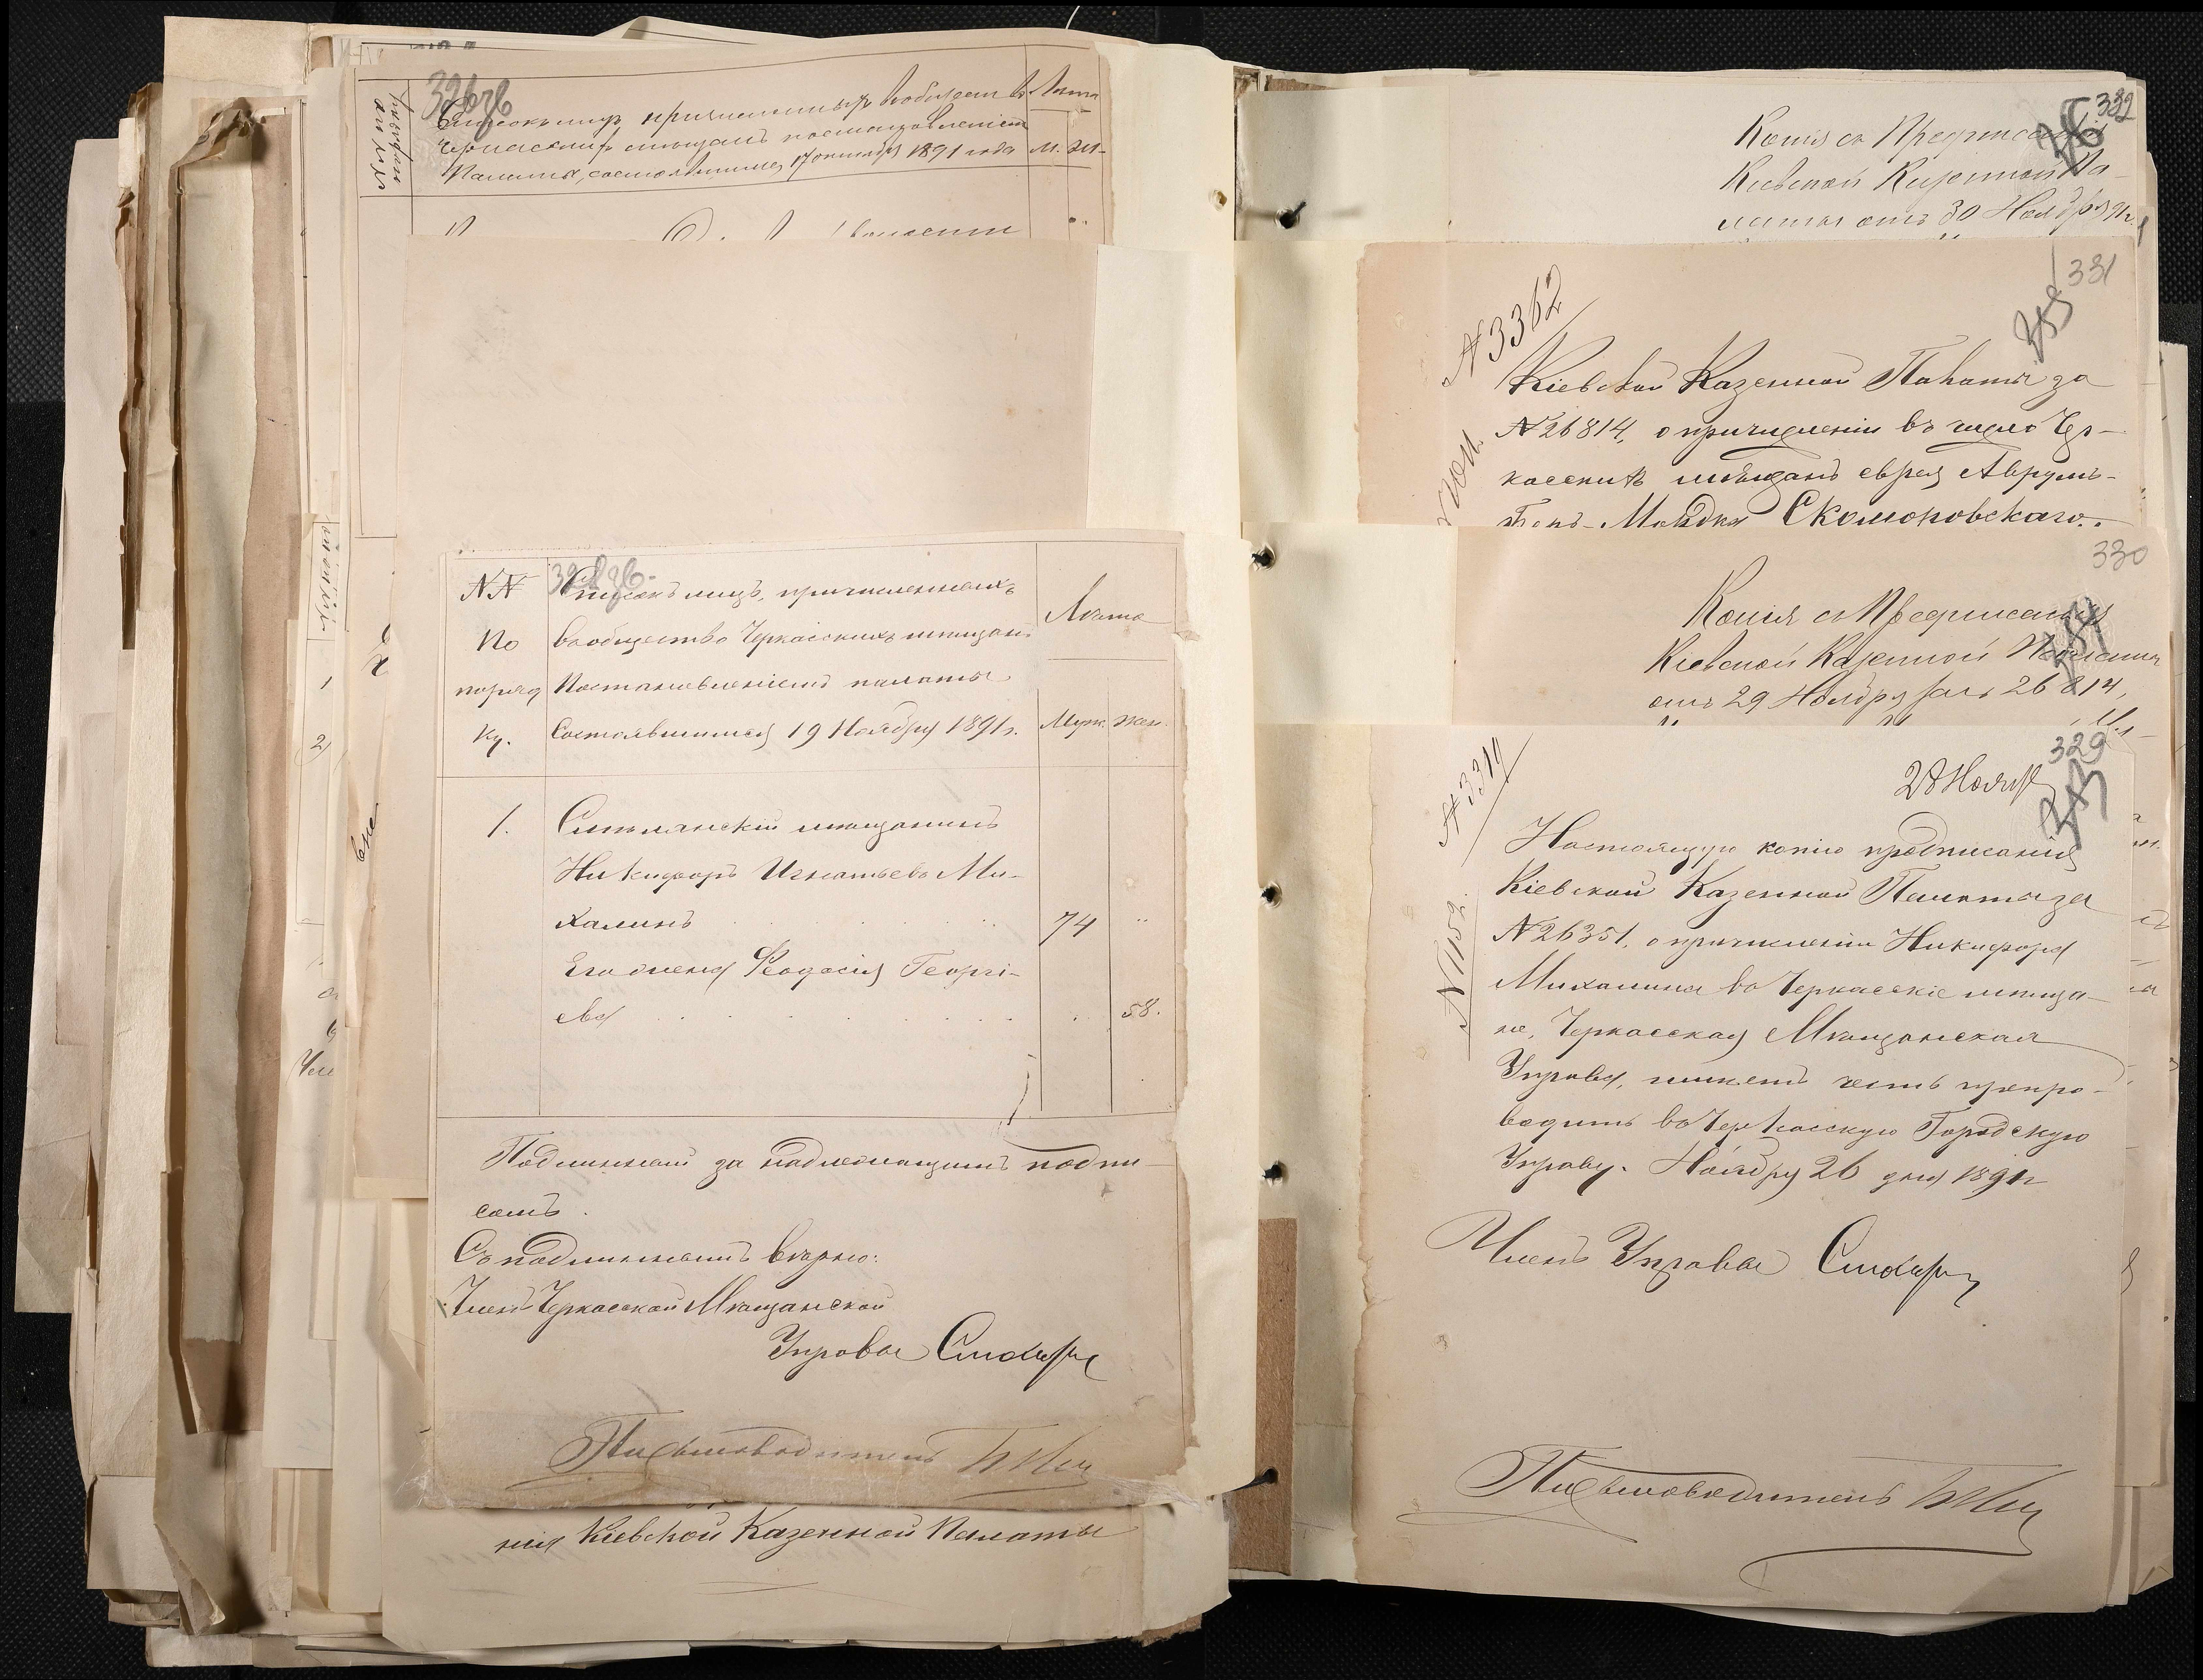 326 об
Списокъ лицъ причисленныхъ въ общество
Черкасскихъ мѣщанъ постановленіемъ
Палаты, состоявшимся 17 октября 1891 года
Лѣта
М.
Ж.
волости
328 об.
NN
по
поряд
ку.
Списокъ лицъ, причисленныхъ
въ общество Черкасскихъ мѣщанъ
Постановленіемъ палаты
Состоявшимся 19 Ноября 1891 г.
Лѣта
Муж.
Жен.
1.
Смѣлянскій мѣщанинъ
Никифоръ Игнатьевъ Ми-
халинъ 74 "
Его жена Феодосія Георгі-
ева 58.
Подлинный за надлежащимъ подпи-
сомъ.
Съ подлиннымъ вѣрно:
Членъ Черкасской Мѣщанской
Управы
Письмоводитель
нія Кіевской Казенной Палаты
332
Копія съ Предписанія
Кіевской Казенной Па-
латы отъ 30 Ноября 91 г.
331
N 3362
Кіевской Казенной Палаты за
N 26814, о причисленіи въ число Чер-
касскихъ мѣщанъ еврея Аврумъ-
Мордка Скоморовскаго.
330
Копія съ Предписанія
Кіевской Казенной Палаты
отъ 29 Ноября за № 26814,
329
N 3319
28 Ноября
Настоящую копію предписанія
Кіевской Казенной Палаты за
N 26351, о причисленіи Никифора
Михалина въ Черкасскіе мѣща-
не, Черкасская Мѣщанская
Управа, имѣетъ честь препро-
водить въ Черкасскую Городскую
Управу. Ноября 26 дня 1891 г
N 1152.
Членъ Управы
Письмоводитель